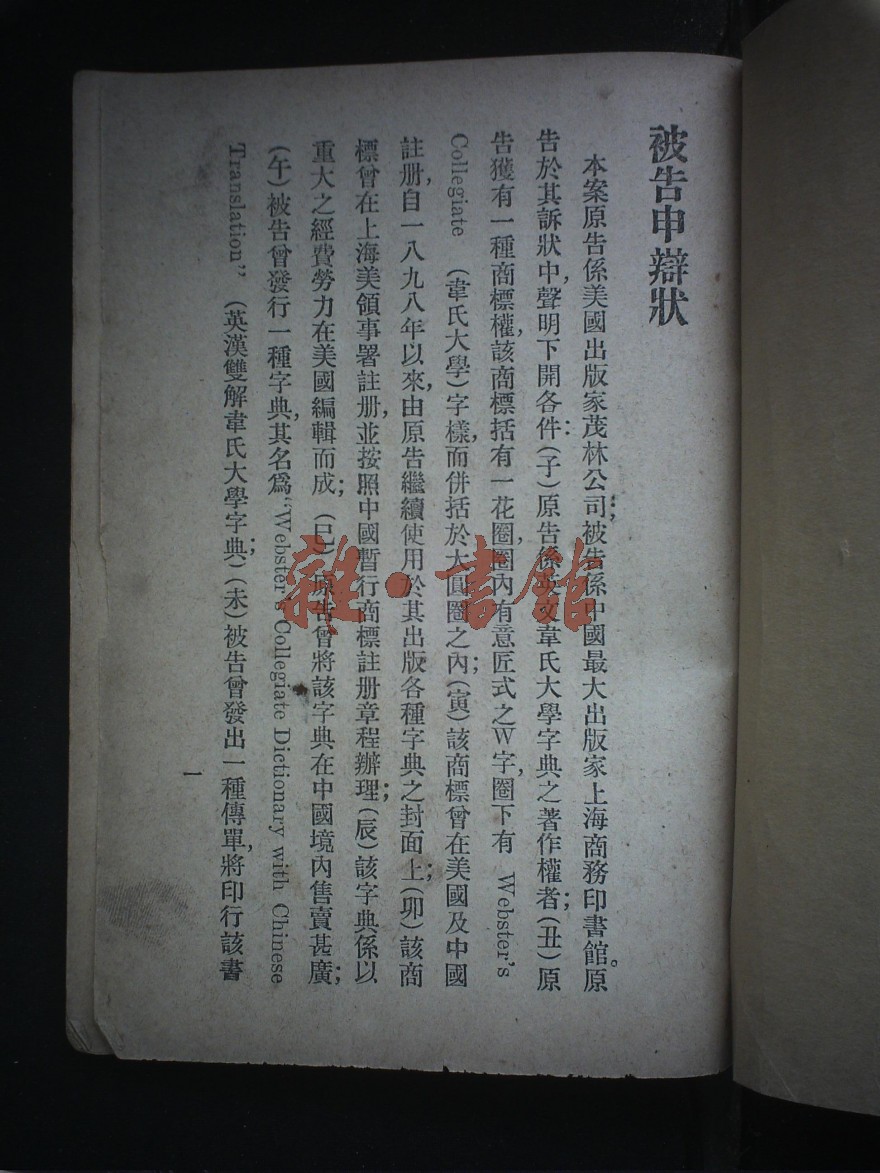 被告申辯狀
本案原告係美國出版家茂林公司;被告係中國最大出版家上海商務印書館。原
告於其訴狀中,聲明下開各件:(子)原告係英文韋氏大學字典之著作權者;(丑)原
告獲有一種商標權,該商標括有一花圈,圈內有意匠式之W字,圈下有 Webster's
Collegiate (韋氏大學)字樣,而併括於大圓圈之內;(寅)該商標曾在美國及中國
註册,自一八九八年以來,由原告繼續使用於其出版各種字典之封面上;(卯)該商
標曾在上海美領事署註册,並按照中國暫行商標註册章程辦理;(辰)該字典係以
重大之經費勞力在美國編輯而成;(巳)原告曾將該字典在中國境內售賣甚廣;
(午)被告曾發行一種字典,其名爲“Webster's Collegiate Dictionary with Chinese
Translation”(英漢雙解韋氏大學字典);(未)被告曾發出一種傳單,將印行該書
一
雜·書館